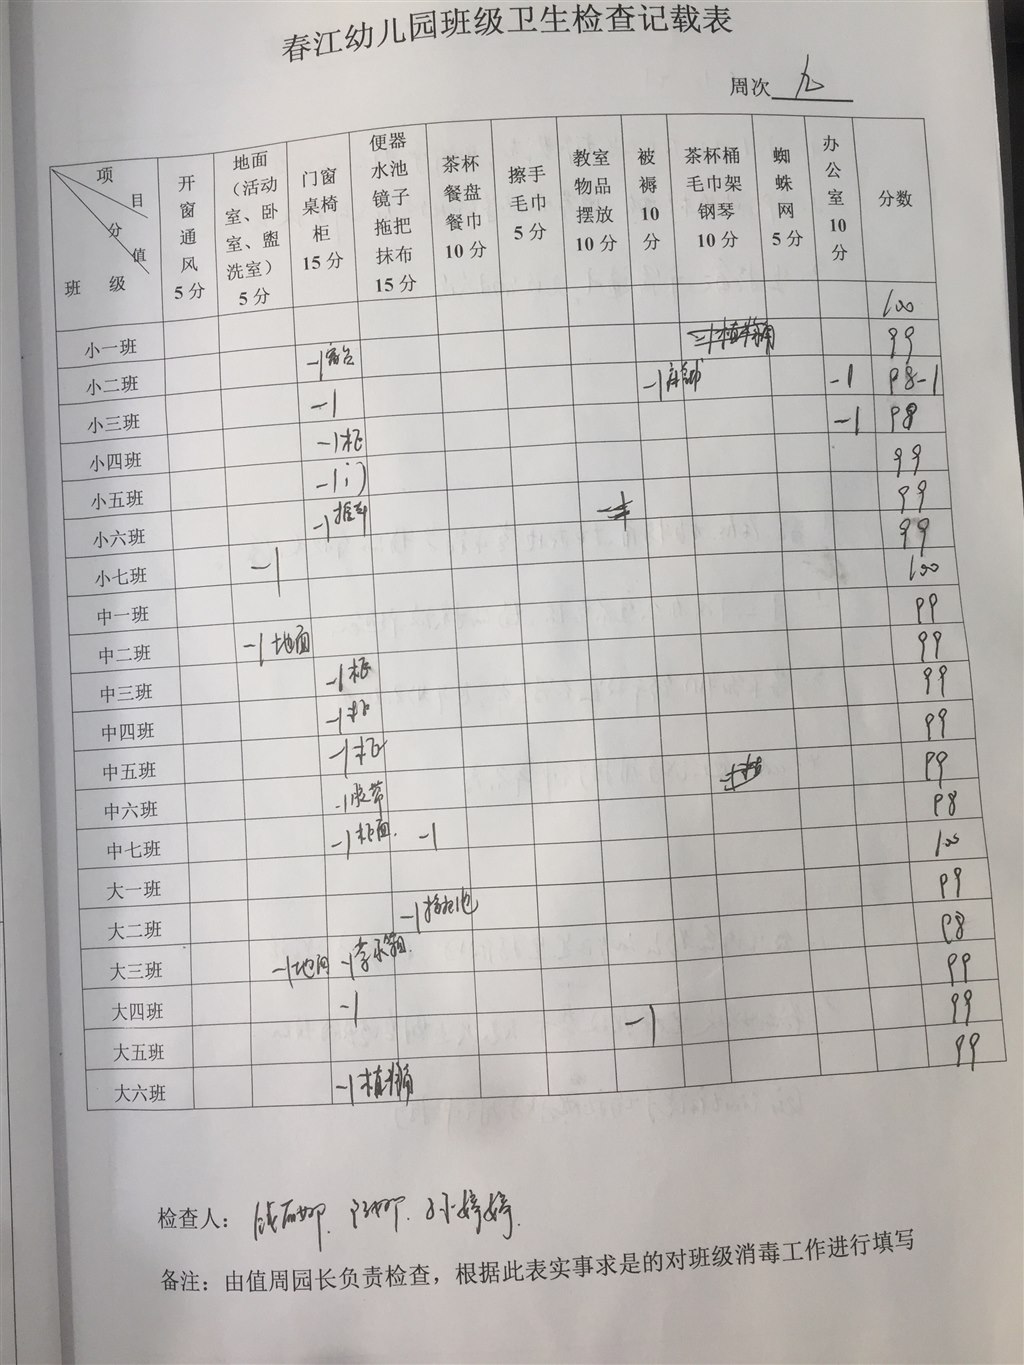 春江幼儿园班级卫生检查记载表
周次 九
项目 分值 班级 开窗通风5分 地面（活动室、卧室、盥洗室）5分 门窗桌椅柜15分 便器水池镜子拖把抹布15分 茶杯餐盘餐巾10分 擦手毛巾5分 教室物品摆放10分 被褥10分 茶杯桶毛巾架钢琴10分 蜘蛛网5分 办公室10分 分数
小一班 100
小二班 -1窗台 99
小三班 -1 -1床铺 -1 98-1
小四班 -1柜 -1 98
小五班 -1门 99
小六班 -1 99
小七班 -1 99
中一班 100
中二班 -1地面 99
中三班 -1柜 99
中四班 -1 99
中五班 -1柜 99
中六班 -1胶带 99
中七班 -1柜面 -1 98
大一班 100
大二班 -1 99
大三班 -1地面 -1 98
大四班 -1 99
大五班 -1 99
大六班 -1植物角 99
检查人： 婷婷
备注：由值周园长负责检查，根据此表实事求是的对班级消毒工作进行填写